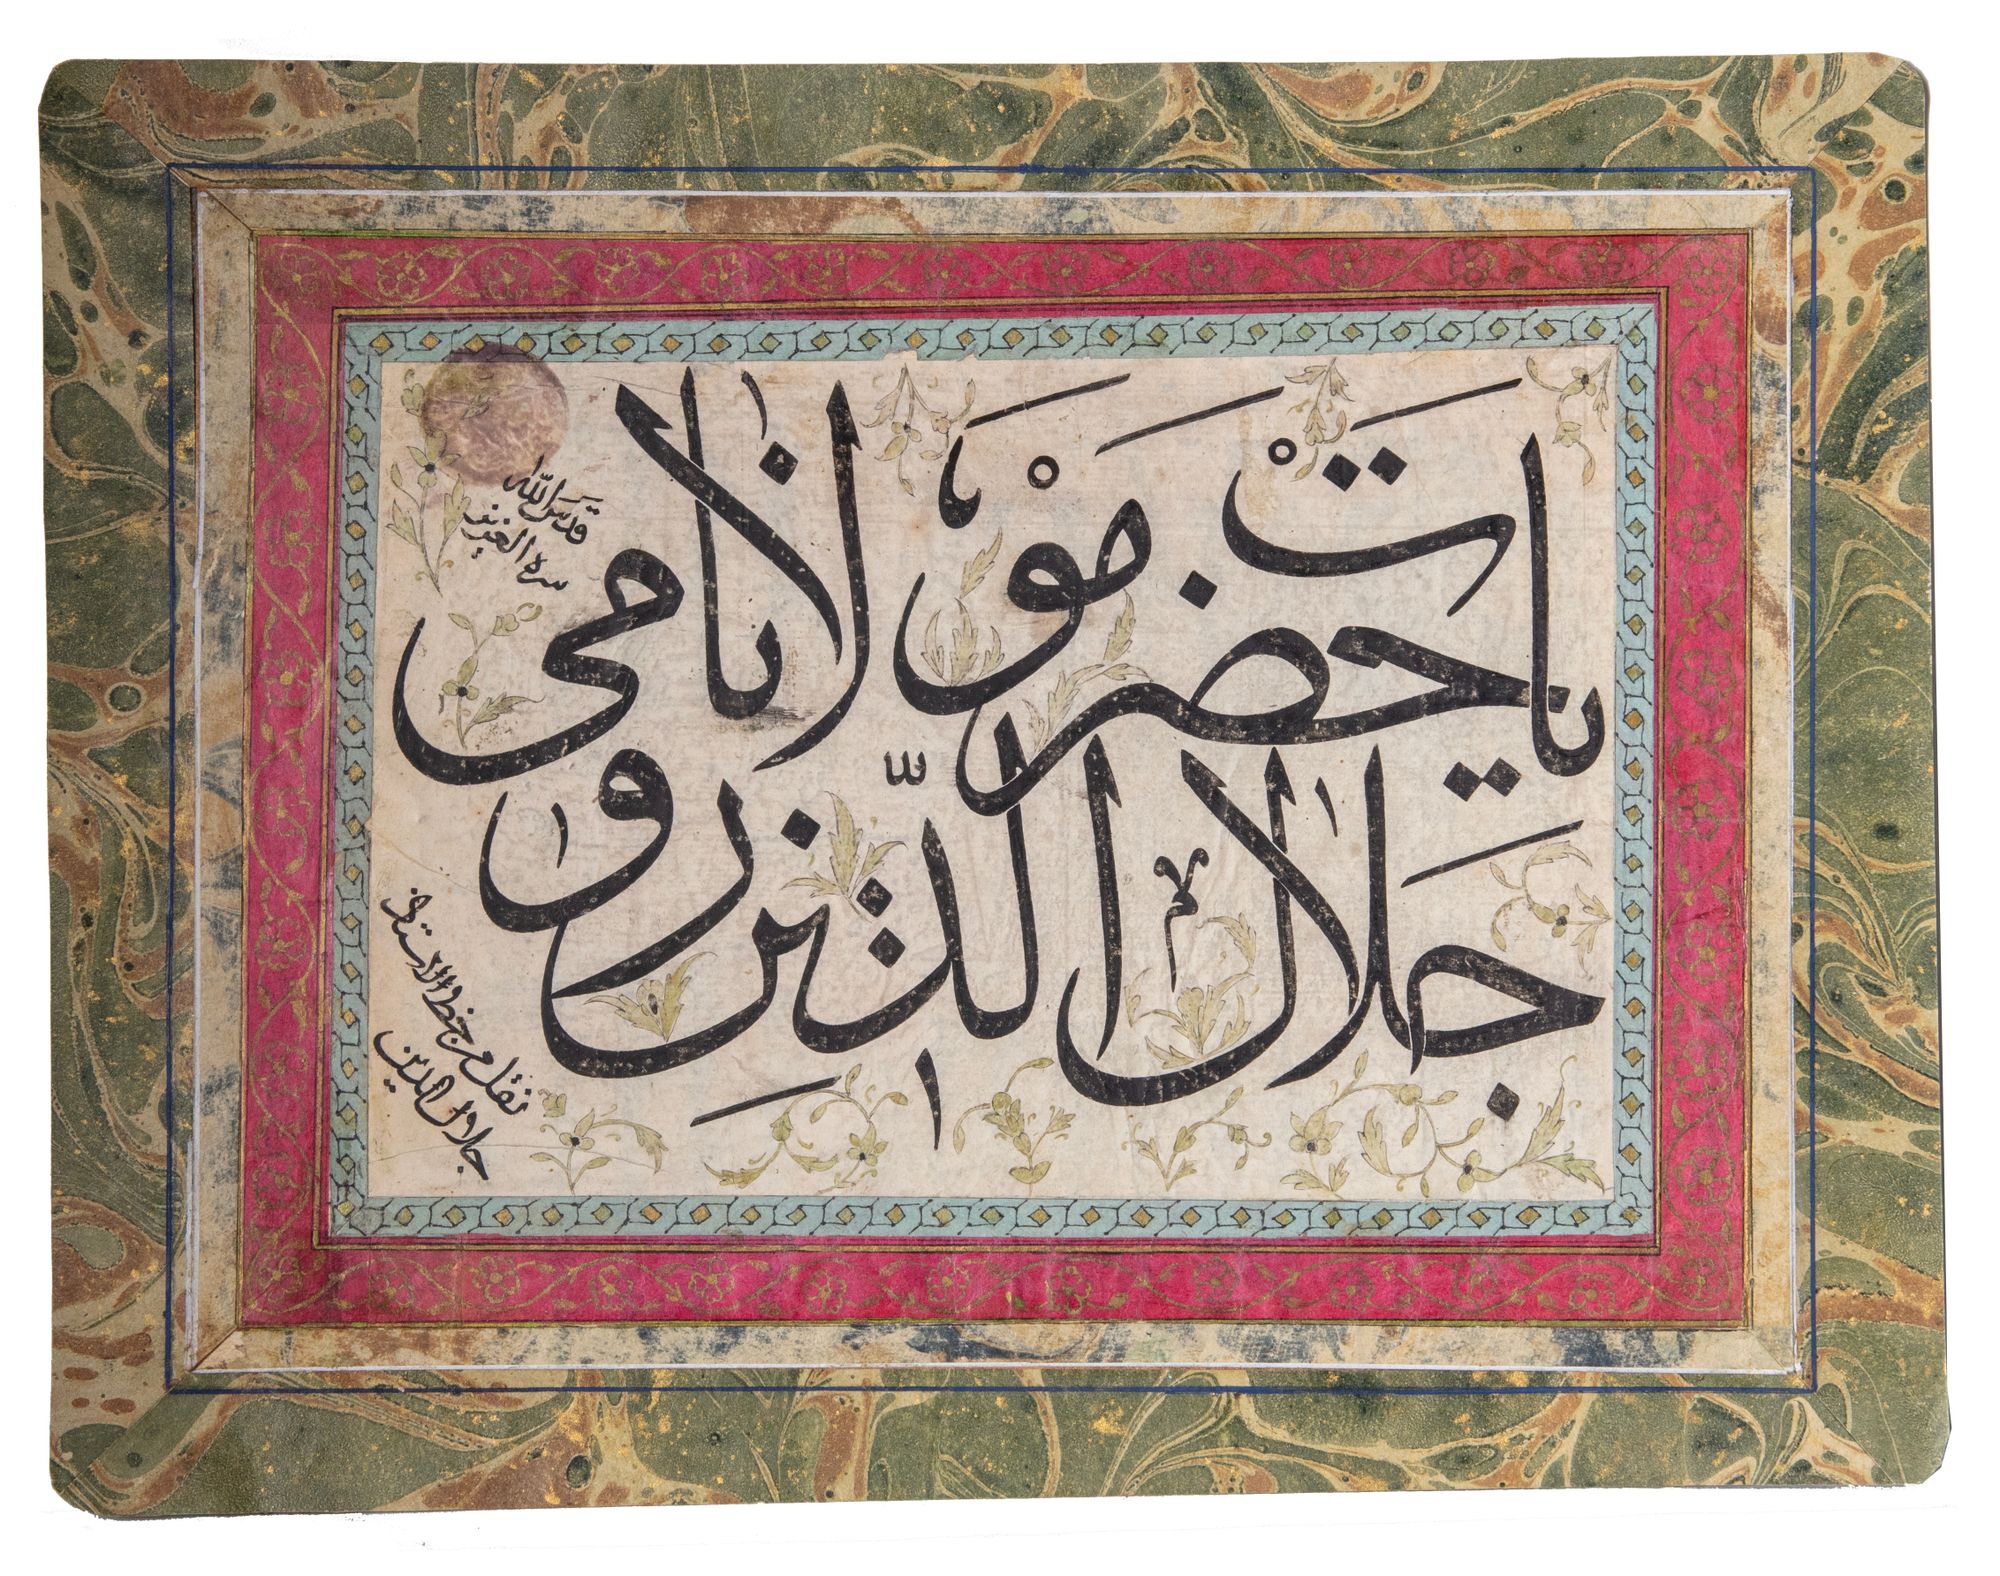 يا حضرت مولانا
جلال الدين رومى
قدس الله
سره العزيز
نقل من خط الاستاذ
جلال الدين